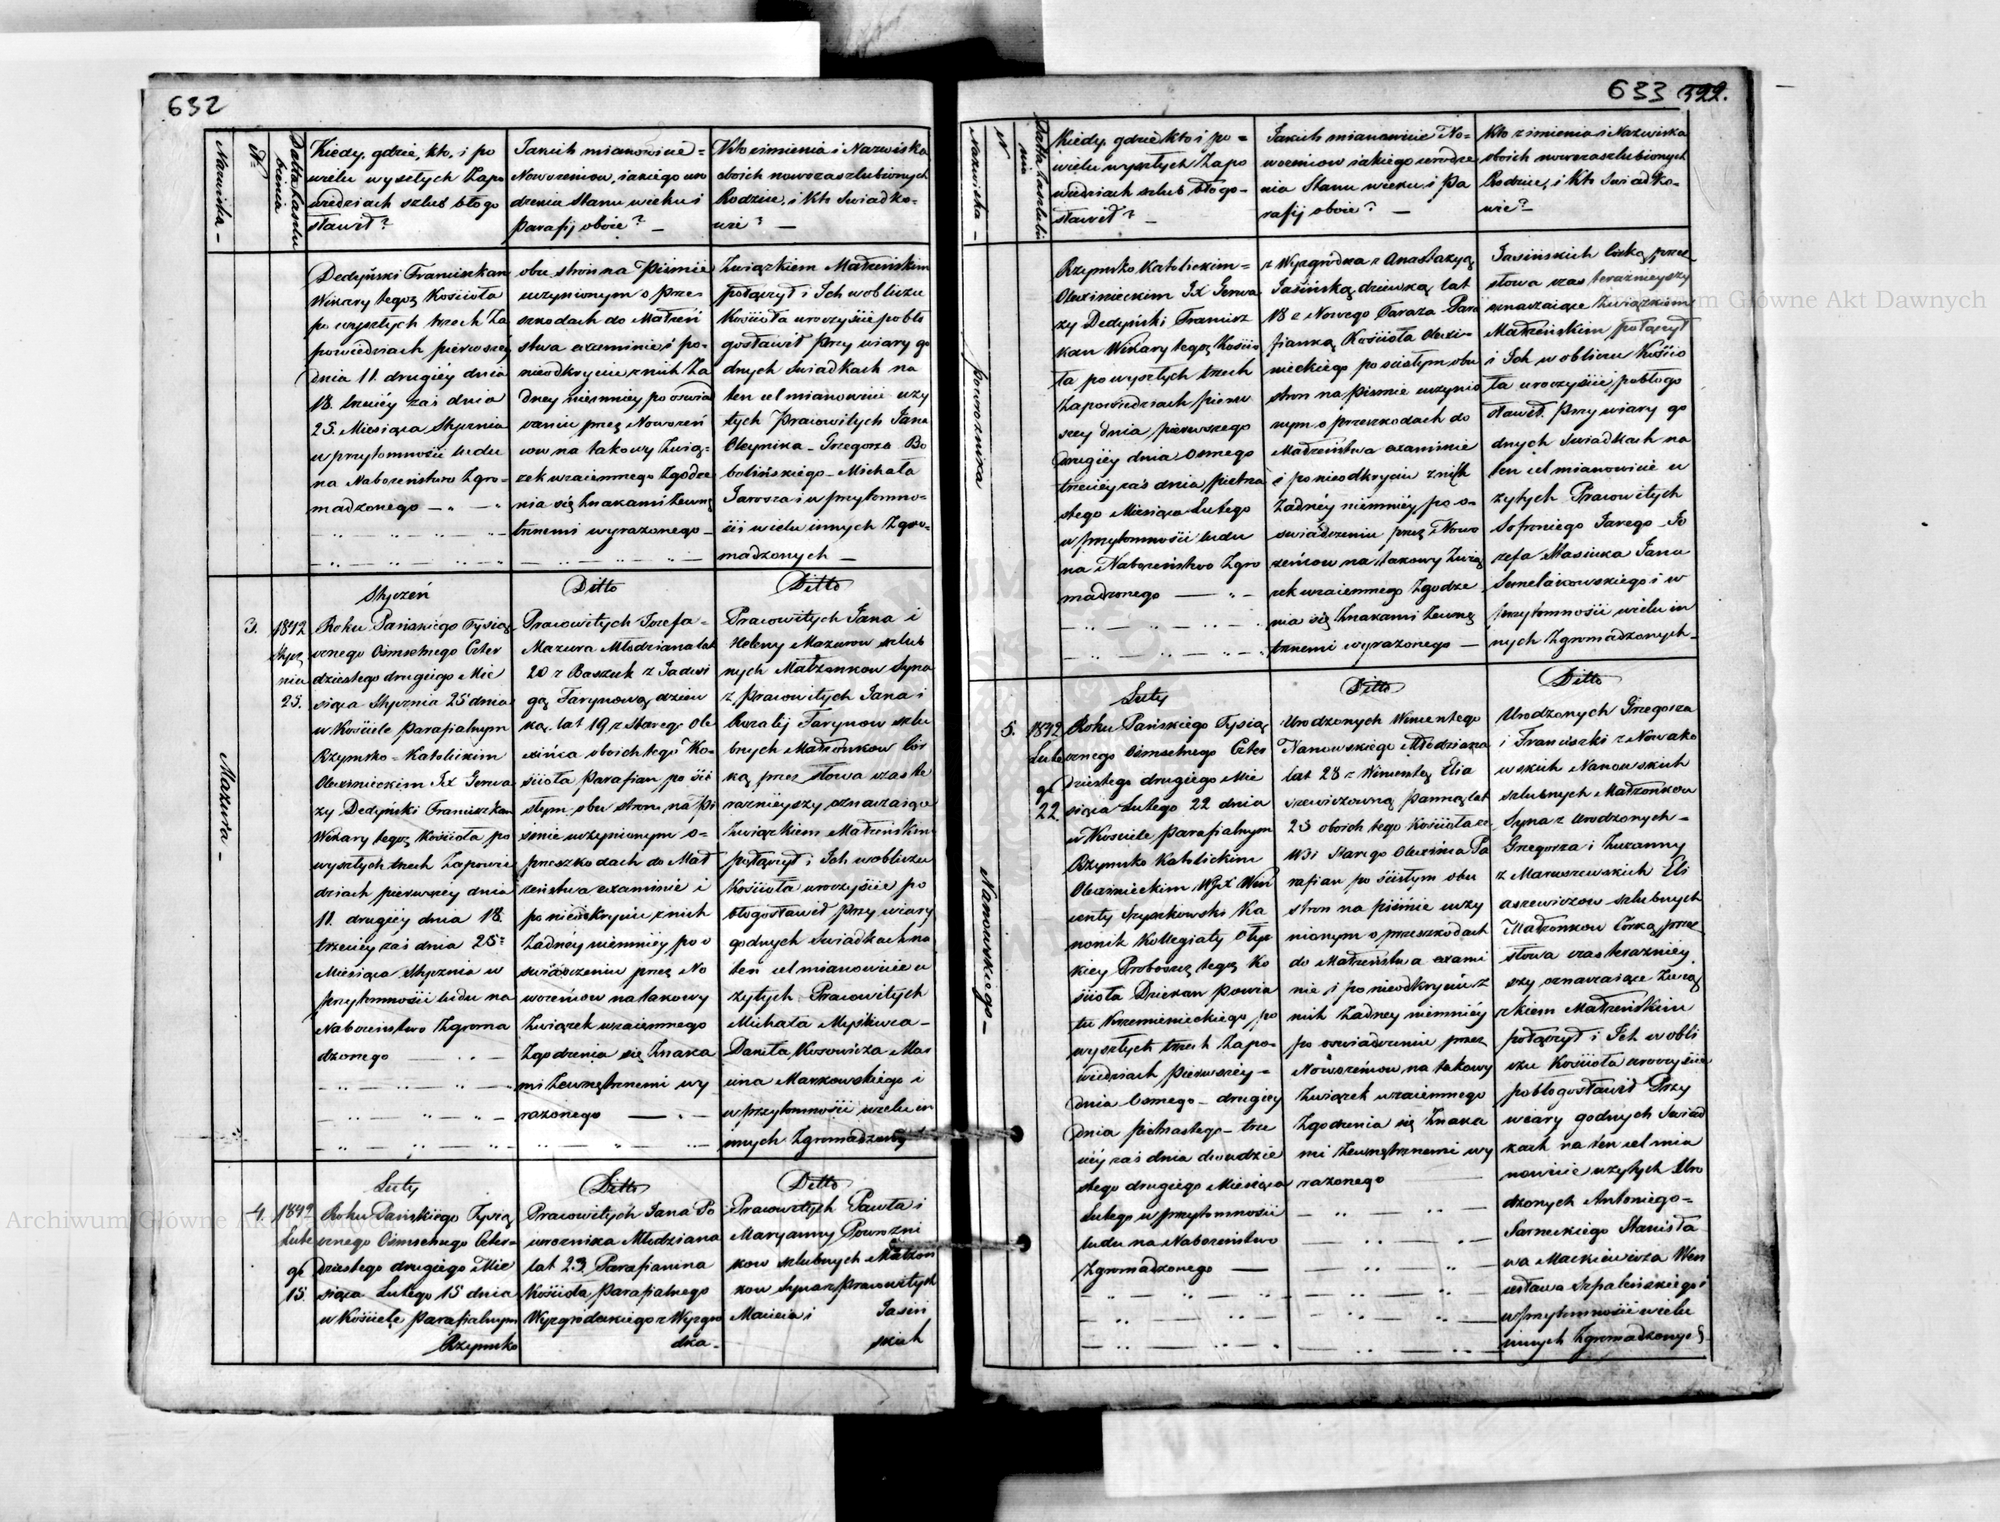 632
Nazwiska –
Nº
Datta zaślu
bienia
Kiedy, gdzie, kto, i po
wielu wyszłych Zapo
wiedziach szlub błogo
sławił?
Jakich mianowicie
Nowożeniow, iakiego uro
dzenia Stanu wieku i
Parafij oboie? –
Kto z imienia i Nazwiska
oboich nowozaszlubionych
Rodzice, i kto Swiadko-
wie? –
Dedyński Franciszkan
Wikary tegoż Kościoła
po wyszłych trzech Za
powiedziach pierwszey
dnia 11. drugiéy dnia
18. trzeciéy zaś dnia
25. Miesiąca Stycznia
w przytomności ludu
na Nabożeństwo Zgro-
madzonego
obu stron na Piśmie
uczynionym o prze
szkodach do Małżeń
stwa examinie i po-
nieodkryciu z nich Ża
dney niemniey po oswiad
czeniu przez Nowożeń
cow na takowy Zwią-
zek wzaiemnego Zgodze
nia się Znakami Zewnę
trznemi wyrażonego –
Związkiem Małżeńskim
połączył i Ich w obliczu
Kościoła uroczyście pobło
gosławił przy wiary go
dnych Swiadkach na
ten cel mianowicie uży
tych Pracowitych Jana
Oleynika – Grzegorza Bo
bolińskiego – Michała
Jarosza i w przytomno-
ści wielu innych Zgro-
madzonych –
Mazura –
3.
1842
Stycz
nia
25.
Styczeń
Roku Pańskiego Tysiąc
cznego Ośmsetnego Czter
dziestego drugiego Mie
siąca Stycznia 25 dnia
w Kościele Parafialnym
Rzymsko-Katolickim
Olexinieckim Jx Gerwa
zy Dedyński Franciszkan
Wikary tegoż Kościoła po
wyszłych trzech Zapowie
dziach pierwszey dnia
11. drugiéy dnia 18.
trzeciey zaś dnia 25.
Miesiąca Stycznia w
przytomności ludu na
Nabożeństwo Zgroma
dzonego
Ditto
Pracowitych Jozefa
Mazura Młodziana lat
20 z Baszuk z Jadwi
gą Farynową dziew
ką, lat 19 z Starego Ole
xińca oboich tego Ko-
ścioła Parafian po ści
słym obu stron na pi
smie uczynionym o-
przeszkodach do Mał
żeństwa examinie i
po nieodkryciu z nich
Żadney niemniéy po o
swiadczeniu przez No
wożeńcow na takowy
Związek wzaiemnego
Zgodzenia się Znaka
mi Zewnętrznemi wy
rażonego
Ditto
Pracowitych Jana i
Heleny Mazurow szlub
nych Małżonkow Syna
z Pracowitych Jana i
Rozalij Farynow szlu
bnych Małżonkow Cór
ką, przez słowa czas te
raznieyszy oznaczaiące
Związkiem Małżeńskim
połączył i Ich w obliczu
Kościoła uroczyście po
błogosławił przy wiary
godnych Swiadkach na
ten cel mianowicie u
żytych Pracowitych
Michała Myśliwca –
Daniła Kosowicza Mar
cina Markowskiego i
w przytomności wielu in
nnych Zgromadzonych
4
1842
Lute
go
15.
Luty
Roku Pańskiego Tysiąc
cznego Ośmsetnego Czter-
dziestego drugiego Mie
siąca Lutego 15 dnia
w Kościele Parafialnym
Rzymsko
Ditto
Pracowitych Jana Po
wroznika Młodziana
lat 23 Parafianina
Kościoła Parafialnego
Wyzgrodzkiego z Wyzgro
dka –
Ditto
Pracowitych Pawła i
Maryanny Powrozni
kow szlubnych Małżon
kow Syna z Pracowitych
Macieia i Jasiń
skich
633 322.
Nazwiska –
N
Datta zaszlubie
nia
Kiedy, gdzie kto i po-
wielu wyszłych Zapo
wiedziach szlub błogo-
sławił? –
Jakich mianowicie No-
wożeniow iakiego urodze
nia Stanu wieku i Pa
rafij oboie? –
Kto z imienia i Nazwiska
oboich nowozaszlubionych
Rodzice, i kto Swiadko-
wie? –
Powroznika
Rzymsko Katolickim
Olexinieckim Jx Gerwa
zy Dedyński Francisz
kan Wikary tegoż Kościo
ła po wyszłych trzech
Zapowiedziach pierw
szey dnia pierwszego
drugiéy dnia osmego
trzeciéy zaś dnia pietna
stego Miesiąca Lutego
w przytomności ludu
na Nabożeństwo Zgro
madzonego
z Wyzgrodka z Anastazyą
Jasińską dziewką lat
18 z Nowego Taraża Para
fianką Kościoła Olexi-
nieckiego po scisłym obu
stron na Piśmie uczynio
nym o przeszkodach do
Małżeństwa examinie
i po nieodkryciu z nich
Żadnéy niemniéy po o-
swiadczeniu przez Nowo
żeńcow na takowy Zwią
zek wzaiemnego Zgodze
nia się Znakami Zewnę
trznemi wyrażonego –
Jasińskich Córką, przez
słowa czas teraznieyszy
oznaczaiące Związkiem
Małżeńskim połączył
i Ich w obliczu Kościo
ła uroczyście pobłogo
sławił. przy wiary go
dnych Swiadkach na
ten cel mianowicie u
żytych Pracowitych
Sofroniego Jarego Jo
zefa Stasiuka Jana
Semelakowskiego i w
przytomności wielu in
nych Zgromadzonych –
Nanowskiego –
5.
1842
Lute
go
22
Luty
Roku Pańskiego Tysiąc
cznego Ośmsetnego Czter
dziestego drugiego Mie
siąca Lutego 22 dnia
w Kościele Parafialnym
Rzymsko Katolickim
Olexinieckim WJX Win
centy Szynkowski Ka
nonik Kollegiaty Ołyc
kiey Proboszcz tegoż Ko
ścioła Dziekan Powia
tu Krzemienieckiego po
wyszłych trzech Zapo-
wiedziach Pierwszéy
dnia Osmego – drugiey
dnia pietnastego – trze
ciéy zaś dnia dwudzie
stego drugiego Miesiąca
Lutego w przytomności
ludu na Nabożeństwo
Zgromadzonego
Ditto
Urodzonych Wincentego
Nanowskiego Młodziana
lat 28 z Wincentą Elia
szewiczowną Panną lat
25 oboich tego Kościoła ze
Wsi Starego Olexińca Pa
rafian po ścisłym obu
stron na piśmie uczy
nionym o przeszkodach
do Małżeństwa exami
nie i po nieodkryciu z
nich Żadney niemniéy
po oswiadczeniu przez
Nowożeńcow na takowy
Związek wzaiemnego
Zgodzenia się Znaka
mi Zewnętrznemi wy
rażonego
Ditto
Urodzonych Grzegorza
i Franciszki z Nowako
wskich Nanowskich
szlubnych Małżonkow
Syna z Urodzonych
Grzegorza i Zuzanny
z Maruszewskich Eli
aszewiczow szlubnych
Małżonkow Córką, przez
słowa czas terazniéy
szy oznaczaiące Zwią
zkiem Małżeńskim
połączył i Ich w obli
czu Kościoła uroczyście
pobłogosławił Przy
wiary godnych Swiad
kach na ten cel mia
nowicie użytych Uro
dzonych Antoniego
Sarneckiego Stanisła
wa Mackiewicza Wen
cesława Szpaleńskiego i
w Przytomności wielu
innych Zgromadzonych
Archiwum Główne Akt Dawnych
Archiwum Główne Akt Dawnych